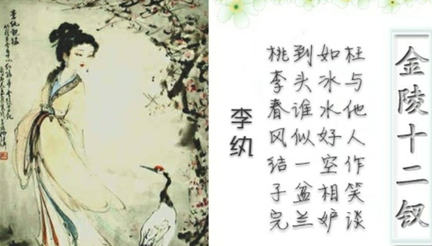 金陵十二钗
桃李春风结子完
到头谁似一盆兰
如冰水好空相妒
枉与他人作笑谈
李纨